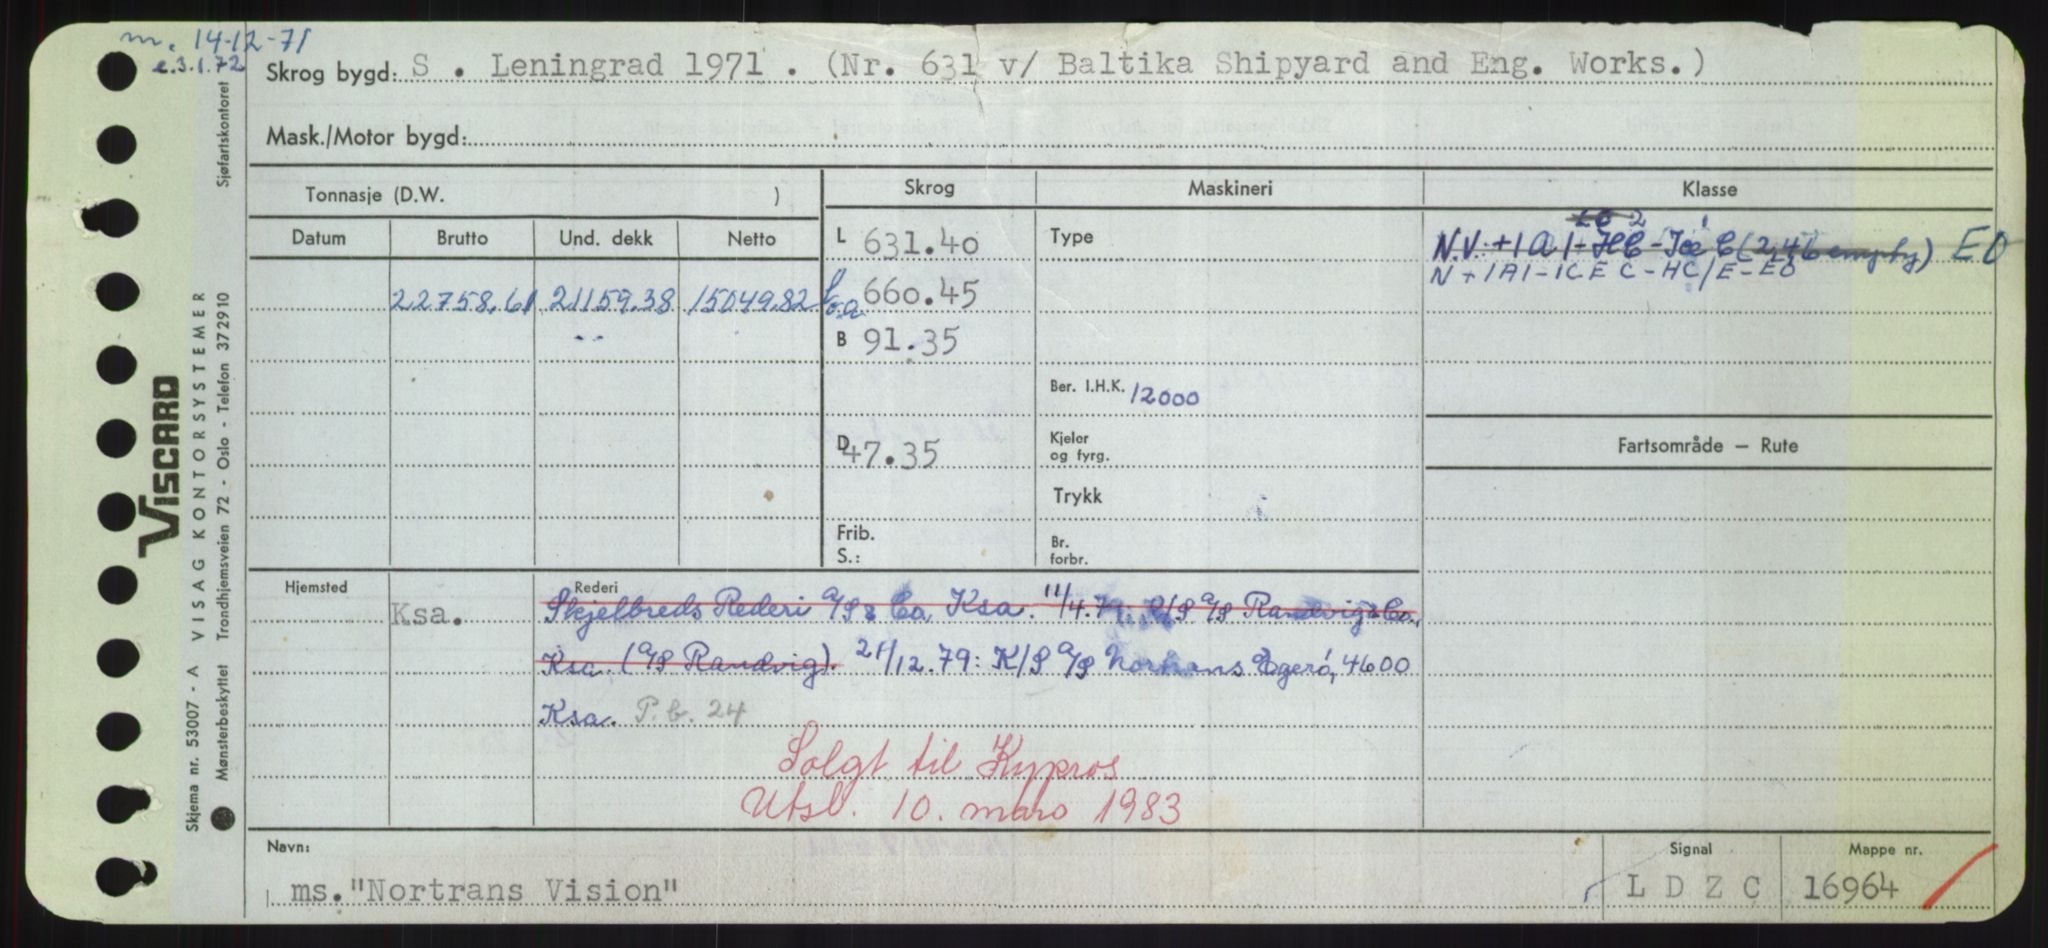 m. 14-12-71
e.3.1.72
Skrog bygd: S . Leningrad 1971 . (Nr. 631 v/ Baltika Shipyard and Eng. Works.)
Mask./Motor bygd:
Tonnasje (D.W. )
Skrog
Maskineri
Klasse
Datum
Brutto
Und. dekk
Netto
L 631.40
Type
N.V. +1A1-HC-Ice C (2,46 empty) EO
N+1A1-ICE C-HC/E-EO
22758.61 21159.38 15049.82
Loa 660.45
B 91.35
Ber. I.H.K. 12000
D 47.35
Kjeler og fyrg.
Fartsområde — Rute
Trykk
Frib. S.:
Br. forbr.
Hjemsted
Rederi
Ksa. Skjelbreds Rederi A/S & Co, Ksa. 11/4.79: K/S A/S Randvig & Co.,
Ksa. (A/S Randvig). 21/12.79: K/S A/S Nortrans Egerö, 4600
Ksa. P.b. 24
Solgt til Kypros
Utsl. 10. mars 1983
Navn:
ms."Nortrans Vision"
Signal
L D Z C
Mappe nr.
16964
VISCARD
Skjema nr. 53007 - A VISAG KONTORSYSTEMER
Mønsterbeskyttet Trondhjemsveien 72 - Oslo - Telefon 372910
Sjøfartskontoret